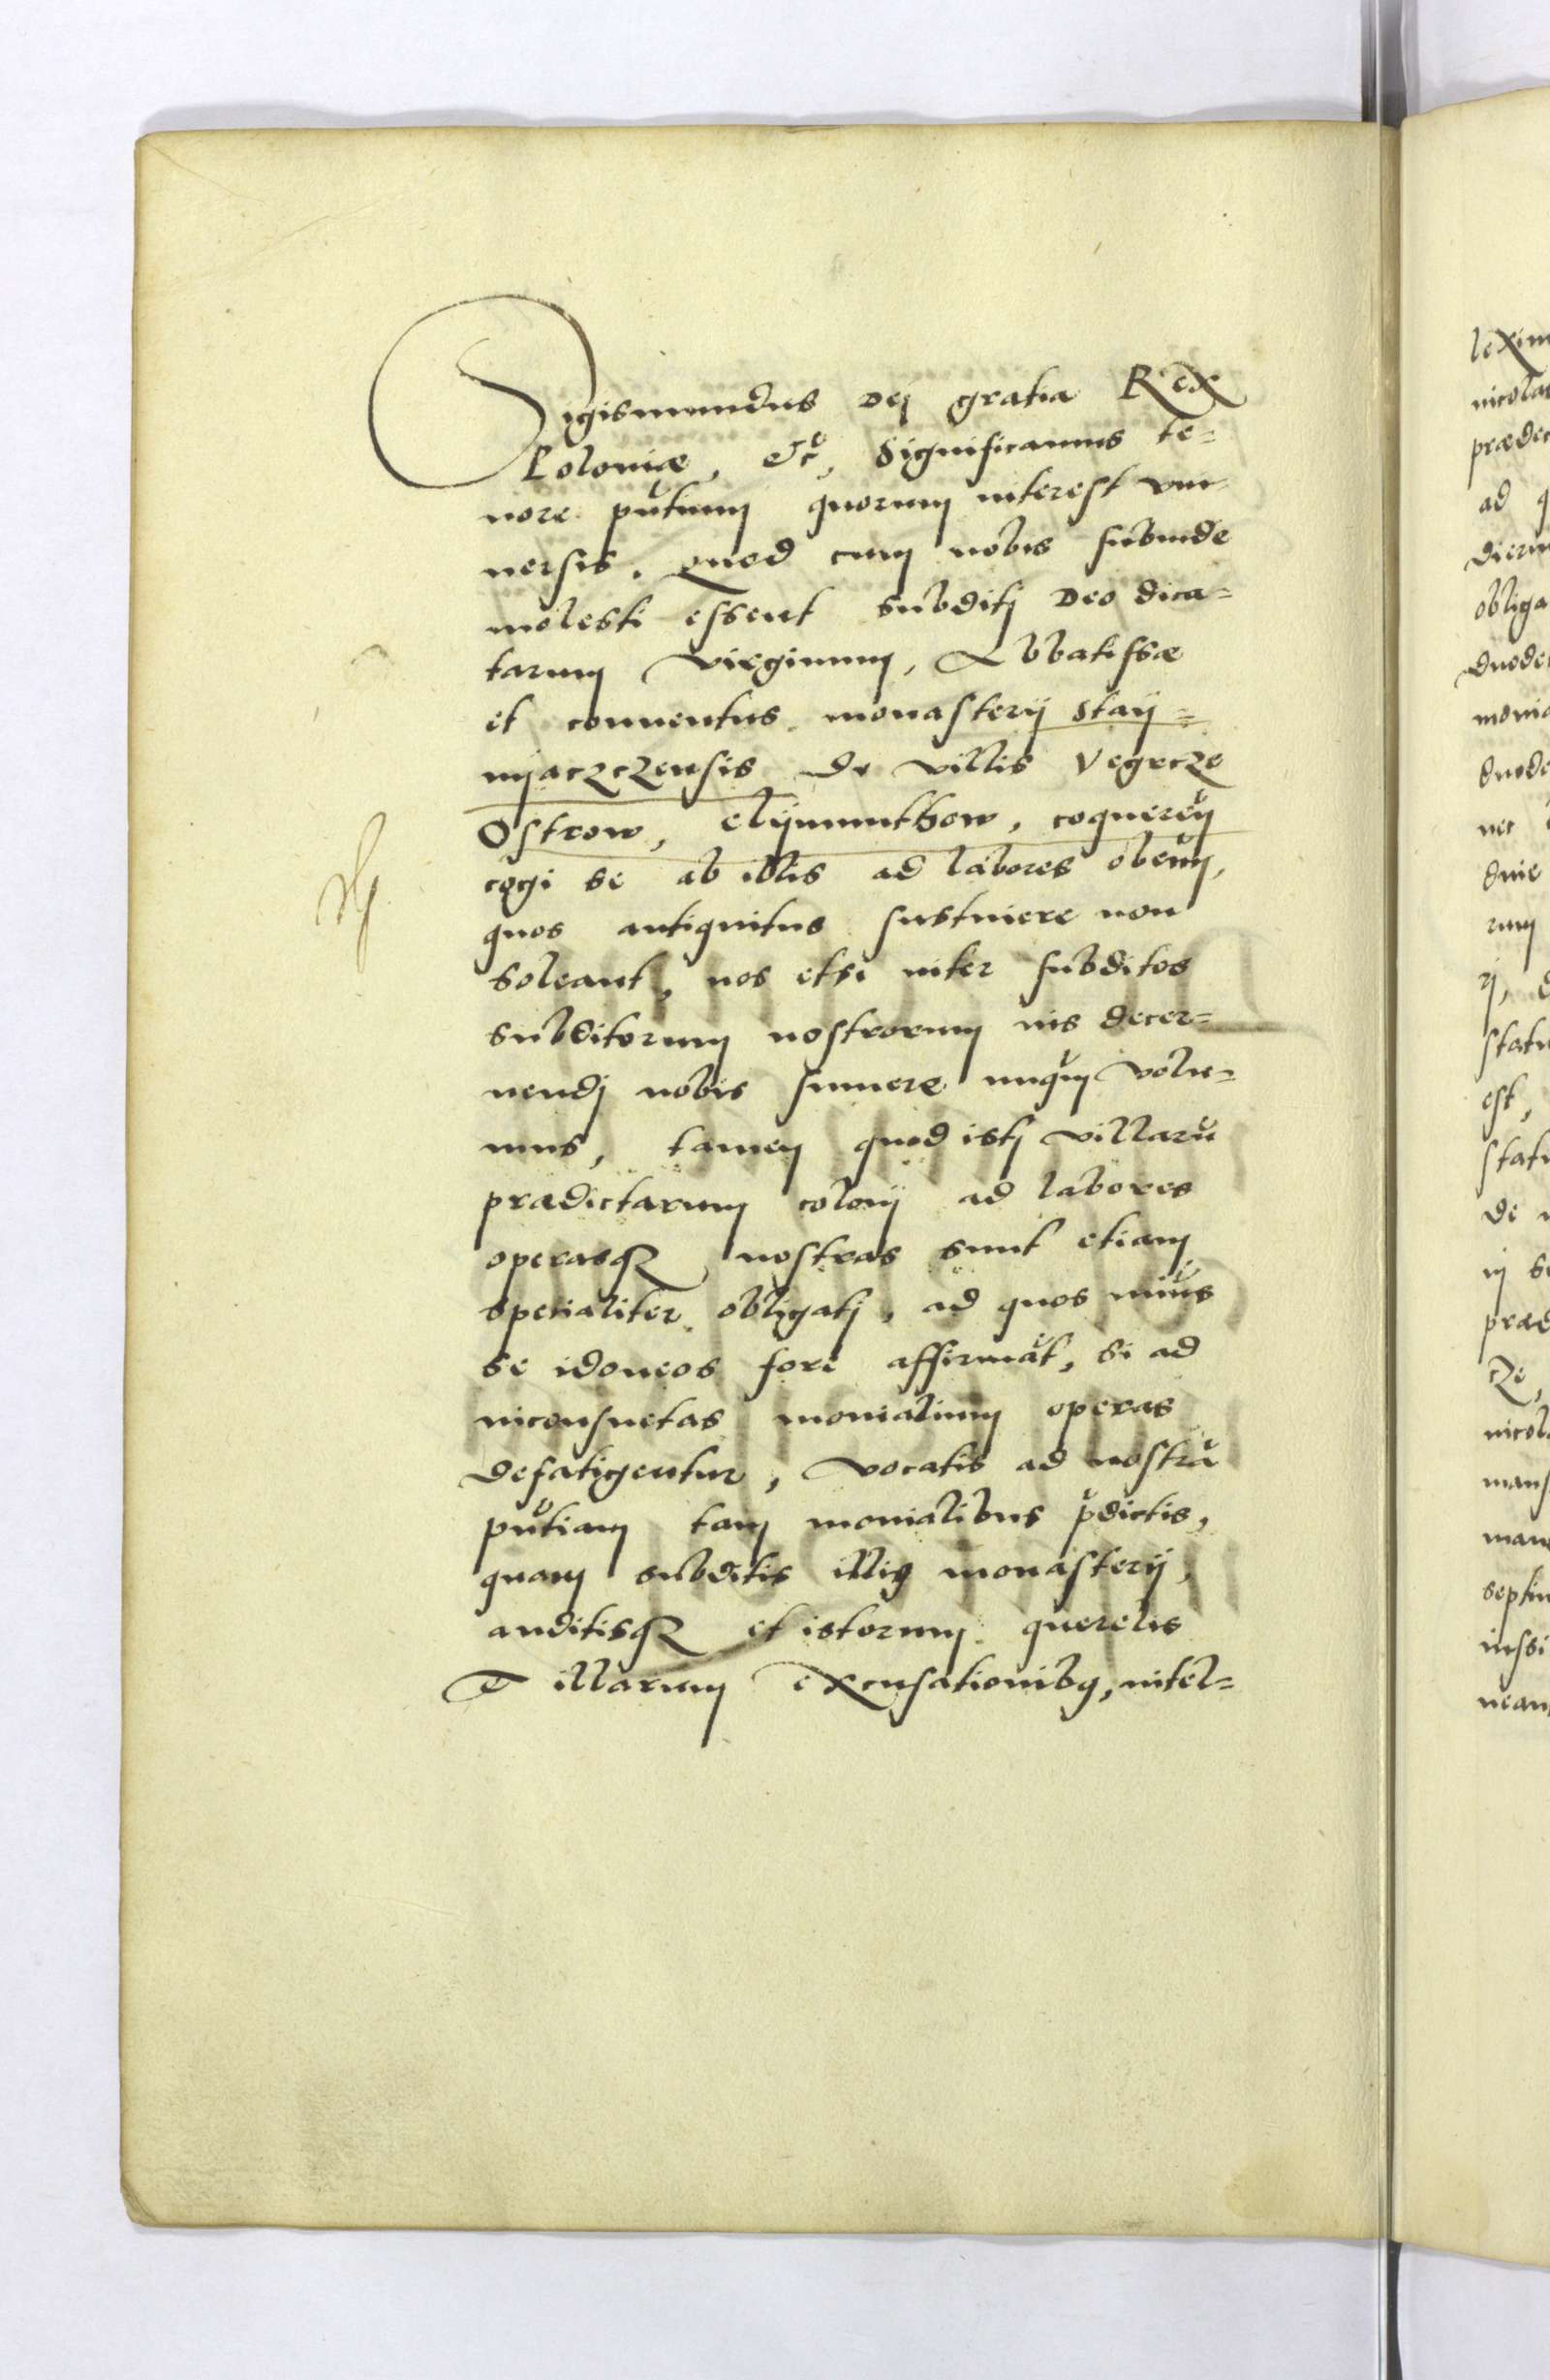 Sigismundus Dei gratia Rex
Poloniæ, &c̃, Significamus te=
nore pñtium quorum interest vni-
uersis. Quod cum nobis subinde
molesti essent subditi Deo dica=
tarum virginum, Abbatissæ
et conuentus monasterij Stany=
myaczczensis de villis Vegrcze
Ostrow, Clymunthow, coquereñ
cogi se ab illis ad labores obeuñ,
quos antiquitus sustinere non
soleant, nos etsi inter subditos
subditorum nostrorum ius decer=
nendi nobis sumere nunq̃m volu=
mus, tamen quod isti villarũ
prædictarum coloni ad labores
operasq; nostras sunt etiam
specialiter obligati, ad quos min9
se idoneos fore affirmãt, si ad
inconsuetas monialium operas
defatigentur, vocatis ad nostrã
pñtiam tam monialibus p̃dictis,
quam subditis illi9 monasterij,
auditisq; et istorum querelis
& illarum excusationib9, intel=
lexim
nicola
prædec
ad q
dieru
obliga
duode
monia
duode
nec
siue
rum
statu
est,
statu
de
præd
cze,
nicol
mans
septim
iussi
neant